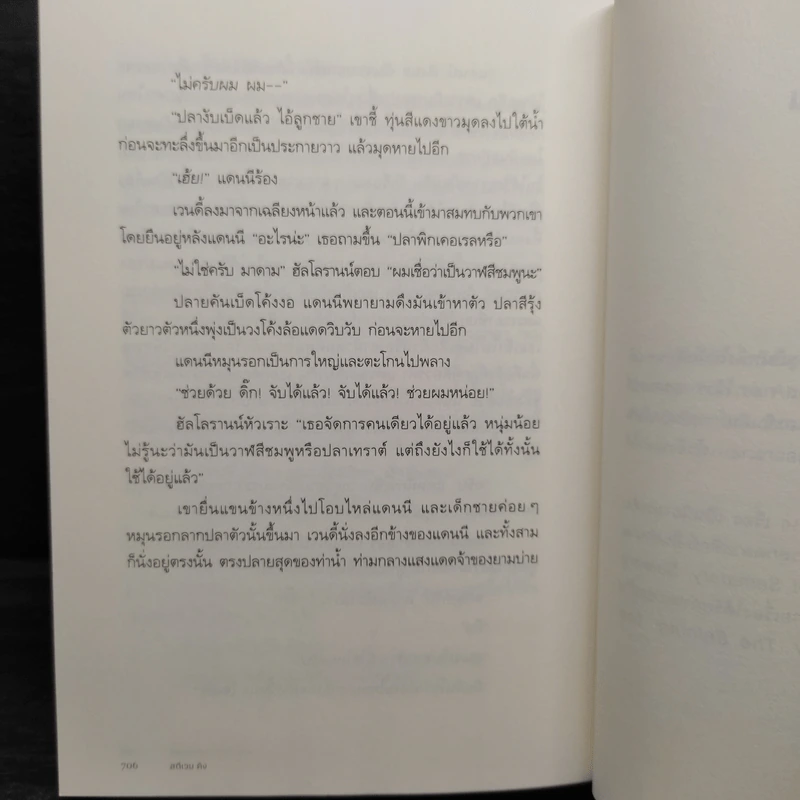 "ไม่ครับผม ผม--"
"ปลางับเบ็ดแล้ว ไอ้ลูกชาย" เขาชี้ ทุ่นสีแดงขาวมุดลงไปใต้น้ำ
ก่อนจะทะลึ่งขึ้นมาอีกเป็นประกายวาว แล้วมุดหายไปอีก
"เฮ้ย!" แดนนีร้อง
เวนดี้ลงมาจากเฉลียงหน้าแล้ว และตอนนี้เข้ามาสมทบกับพวกเขา
โดยยืนอยู่หลังแดนนี "อะไรน่ะ" เธอถามขึ้น "ปลาพิกเคอเรลหรือ"
"ไม่ใช่ครับ มาดาม" ฮัลโลรานน์ตอบ "ผมเชื่อว่าเป็นวาฬสีชมพูนะ"
ปลายคันเบ็ดโค้งงอ แดนนีพยายามดึงมันเข้าหาตัว ปลาสีรุ้ง
ตัวยาวตัวหนึ่งพุ่งเป็นวงโค้งล้อแดดวิบวับ ก่อนจะหายไปอีก
แดนนีหมุนรอกเป็นการใหญ่และตะโกนไปพลาง
"ช่วยด้วย ดิ๊ก! จับได้แล้ว! จับได้แล้ว! ช่วยผมหน่อย!"
ฮัลโลรานน์หัวเราะ "เธอจัดการคนเดียวได้อยู่แล้ว หนุ่มน้อย
ไม่รู้นะว่ามันเป็นวาฬสีชมพูหรือปลาเทราต์ แต่ถึงยังไงก็ใช้ได้ทั้งนั้น
ใช้ได้อยู่แล้ว"
เขายื่นแขนข้างหนึ่งไปโอบไหล่แดนนี และเด็กชายค่อยๆ
หมุนรอกลากปลาตัวนั้นขึ้นมา เวนดี้นั่งลงอีกข้างของแดนนี และทั้งสาม
ก็นั่งอยู่ตรงนั้น ตรงปลายสุดของท่าน้ำ ท่ามกลางแสงแดดจ้าของยามบ่าย
706 สตีเวน คิง